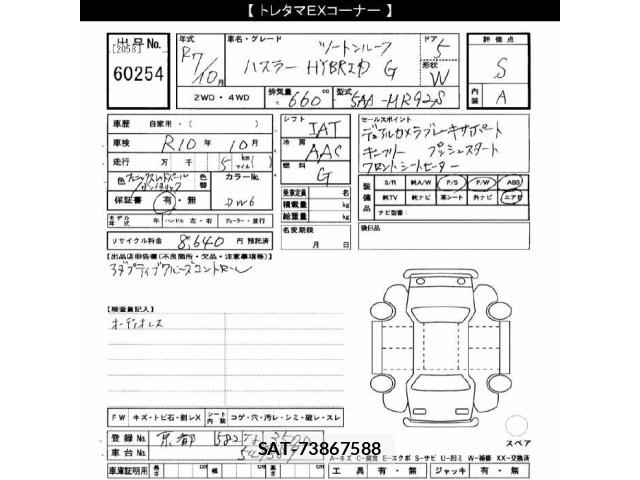 【 トレタマEXコーナー 】
出品No. [2058] 60254
年式 R7/10月
車名・グレード ツートンルーフ ハスラー HYBRID G
ドア 5
形状 W
評価点 S
内装 A
2WD・4WD
排気量 660 cc
型式 5AA-MR92S
車歴 自家用・( )
車検 R10年 10月
走行 万 千 5 km マイル( )
色 色替 カラーNo. DW6
保証書 有・無
モデル年式 年 ハンドル 左・右 ディーラー・並行
リサイクル料金 8,640 円 預託済
シフト IAT
冷房 AAC
燃料 G
乗車定員 名
積載量 kg
総重量 kg
名変期限 月 日
セールスポイント
デュアルカメラブレーキサポート
キーフリー プッシュスタート
フロントシートヒーター
装備品 S/R 純A/W P/S P/W ABS
純TV 純ナビ 革シート 外ナビ エアB
ナビ型番:
後日品
【出品店申告欄(不良箇所・欠品・注意事項等)】
アダプティブクルーズコントロール
【検査員記入】
オーディオレス
FW キズ・トビ石・割レX シート内装 コゲ・穴・汚レ・シミ・破レ・スレ
登録No. 京都 582
車台No.
SAT-73867588
スペア
A-キズ E-エクボ S-サビ U-凹ミ W-補修 XX-交換済
車庫証明用 長さ cm 幅 cm 高さ cm 工具 有・無 ジャッキ 有・無